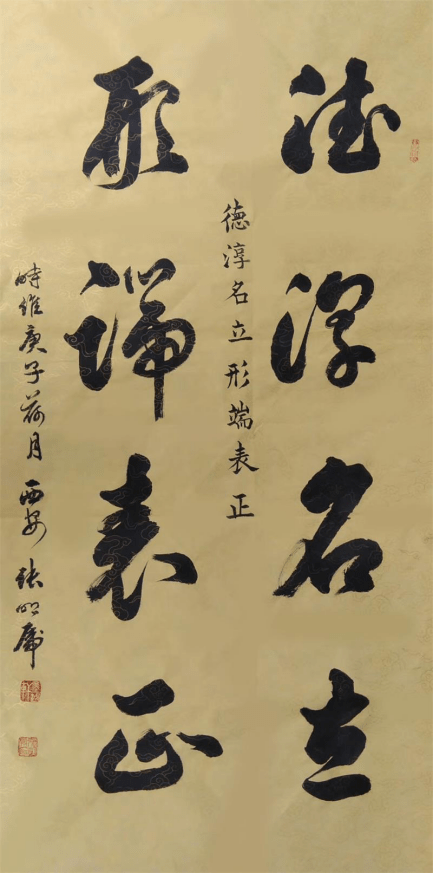 德淳名立
形端表正
德淳名立形端表正
时维庚子荷月西安张明虎